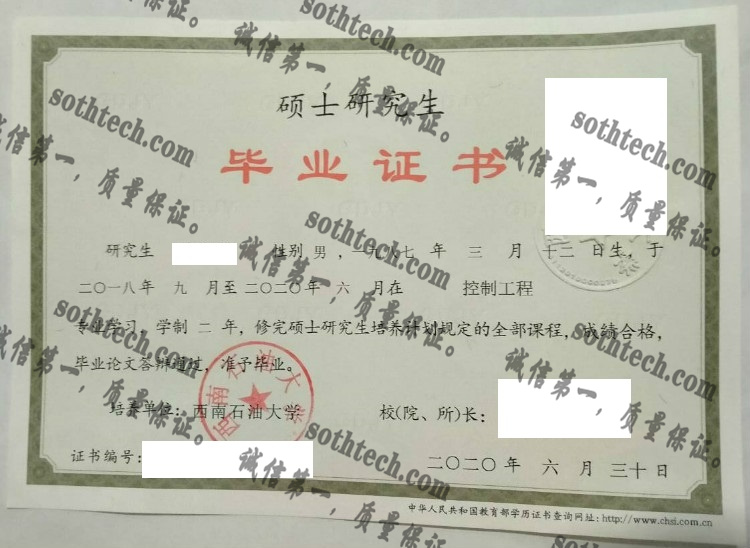 硕士研究生
毕业证书
研究生 性别 男 ，一九八七 年 三 月 十二 日生，于
二〇一八年 九 月至 二〇二〇年 六 月在 控制工程
专业学习，学制 二 年，修完硕士研究生培养计划规定的全部课程，成绩合格，
毕业论文答辩通过，准予毕业。
培养单位：西南石油大学 校(院、所)长：
证书编号：
二〇二〇年 六 月 三十日
中华人民共和国教育部学历证书查询网址：http://www.chsi.com.cn
西南石油大学
sothtech.com
诚信第一，质量保证。
sothtech.com
诚信第一，质量保证。
sothtech.com
诚信第一，质量保证。
sothtech.com
诚信第一，质量保证。
sothtech.com
诚信第一，质量保证。
sothtech.com
诚信第一，质量保证。
sothtech.com
诚信第一，质量保证。
sothtech.com
诚信第一，质量保证。